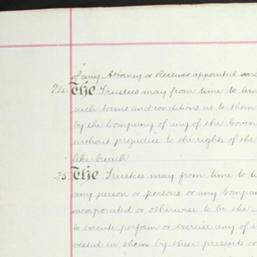 of any Attorney or Receiver appointed
74. The Trustees may from time to time
such terms and conditions as to them
by the Company of any of the Coven
without prejudice to the rights of the
like breach
75. The Trustees may from time to t
any person or persons or any Compan
incorporated or otherwise to be the
to execute perform or exercise any of t
vested in them by these presents o